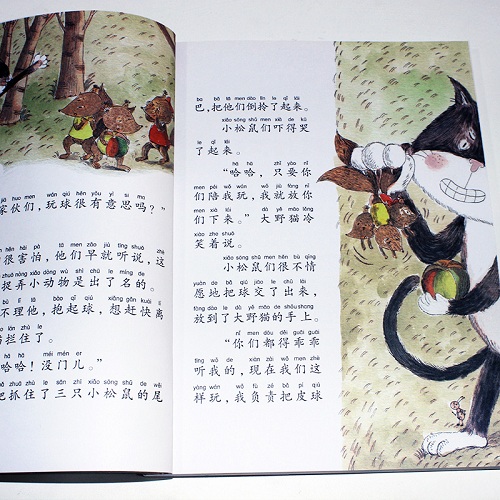 家伙们，玩球很有意思吗？”
很害怕，他们早就听说，这
捉弄小动物是出了名的。
不理他，抱起球，想赶快离
拦住了。
哈哈！没门儿。”
把抓住了三只小松鼠的尾
巴，把他们倒拎了起来。
小松鼠们吓得哭
了起来。
“哈哈，只要你
们陪我玩，我就放你
们下来。”大野猫冷
笑着说。
小松鼠们很不情
愿地把球交了出来，
放到了大野猫的手上。
“你们都得乖乖
听我的，现在我们这
样玩，我负责把皮球